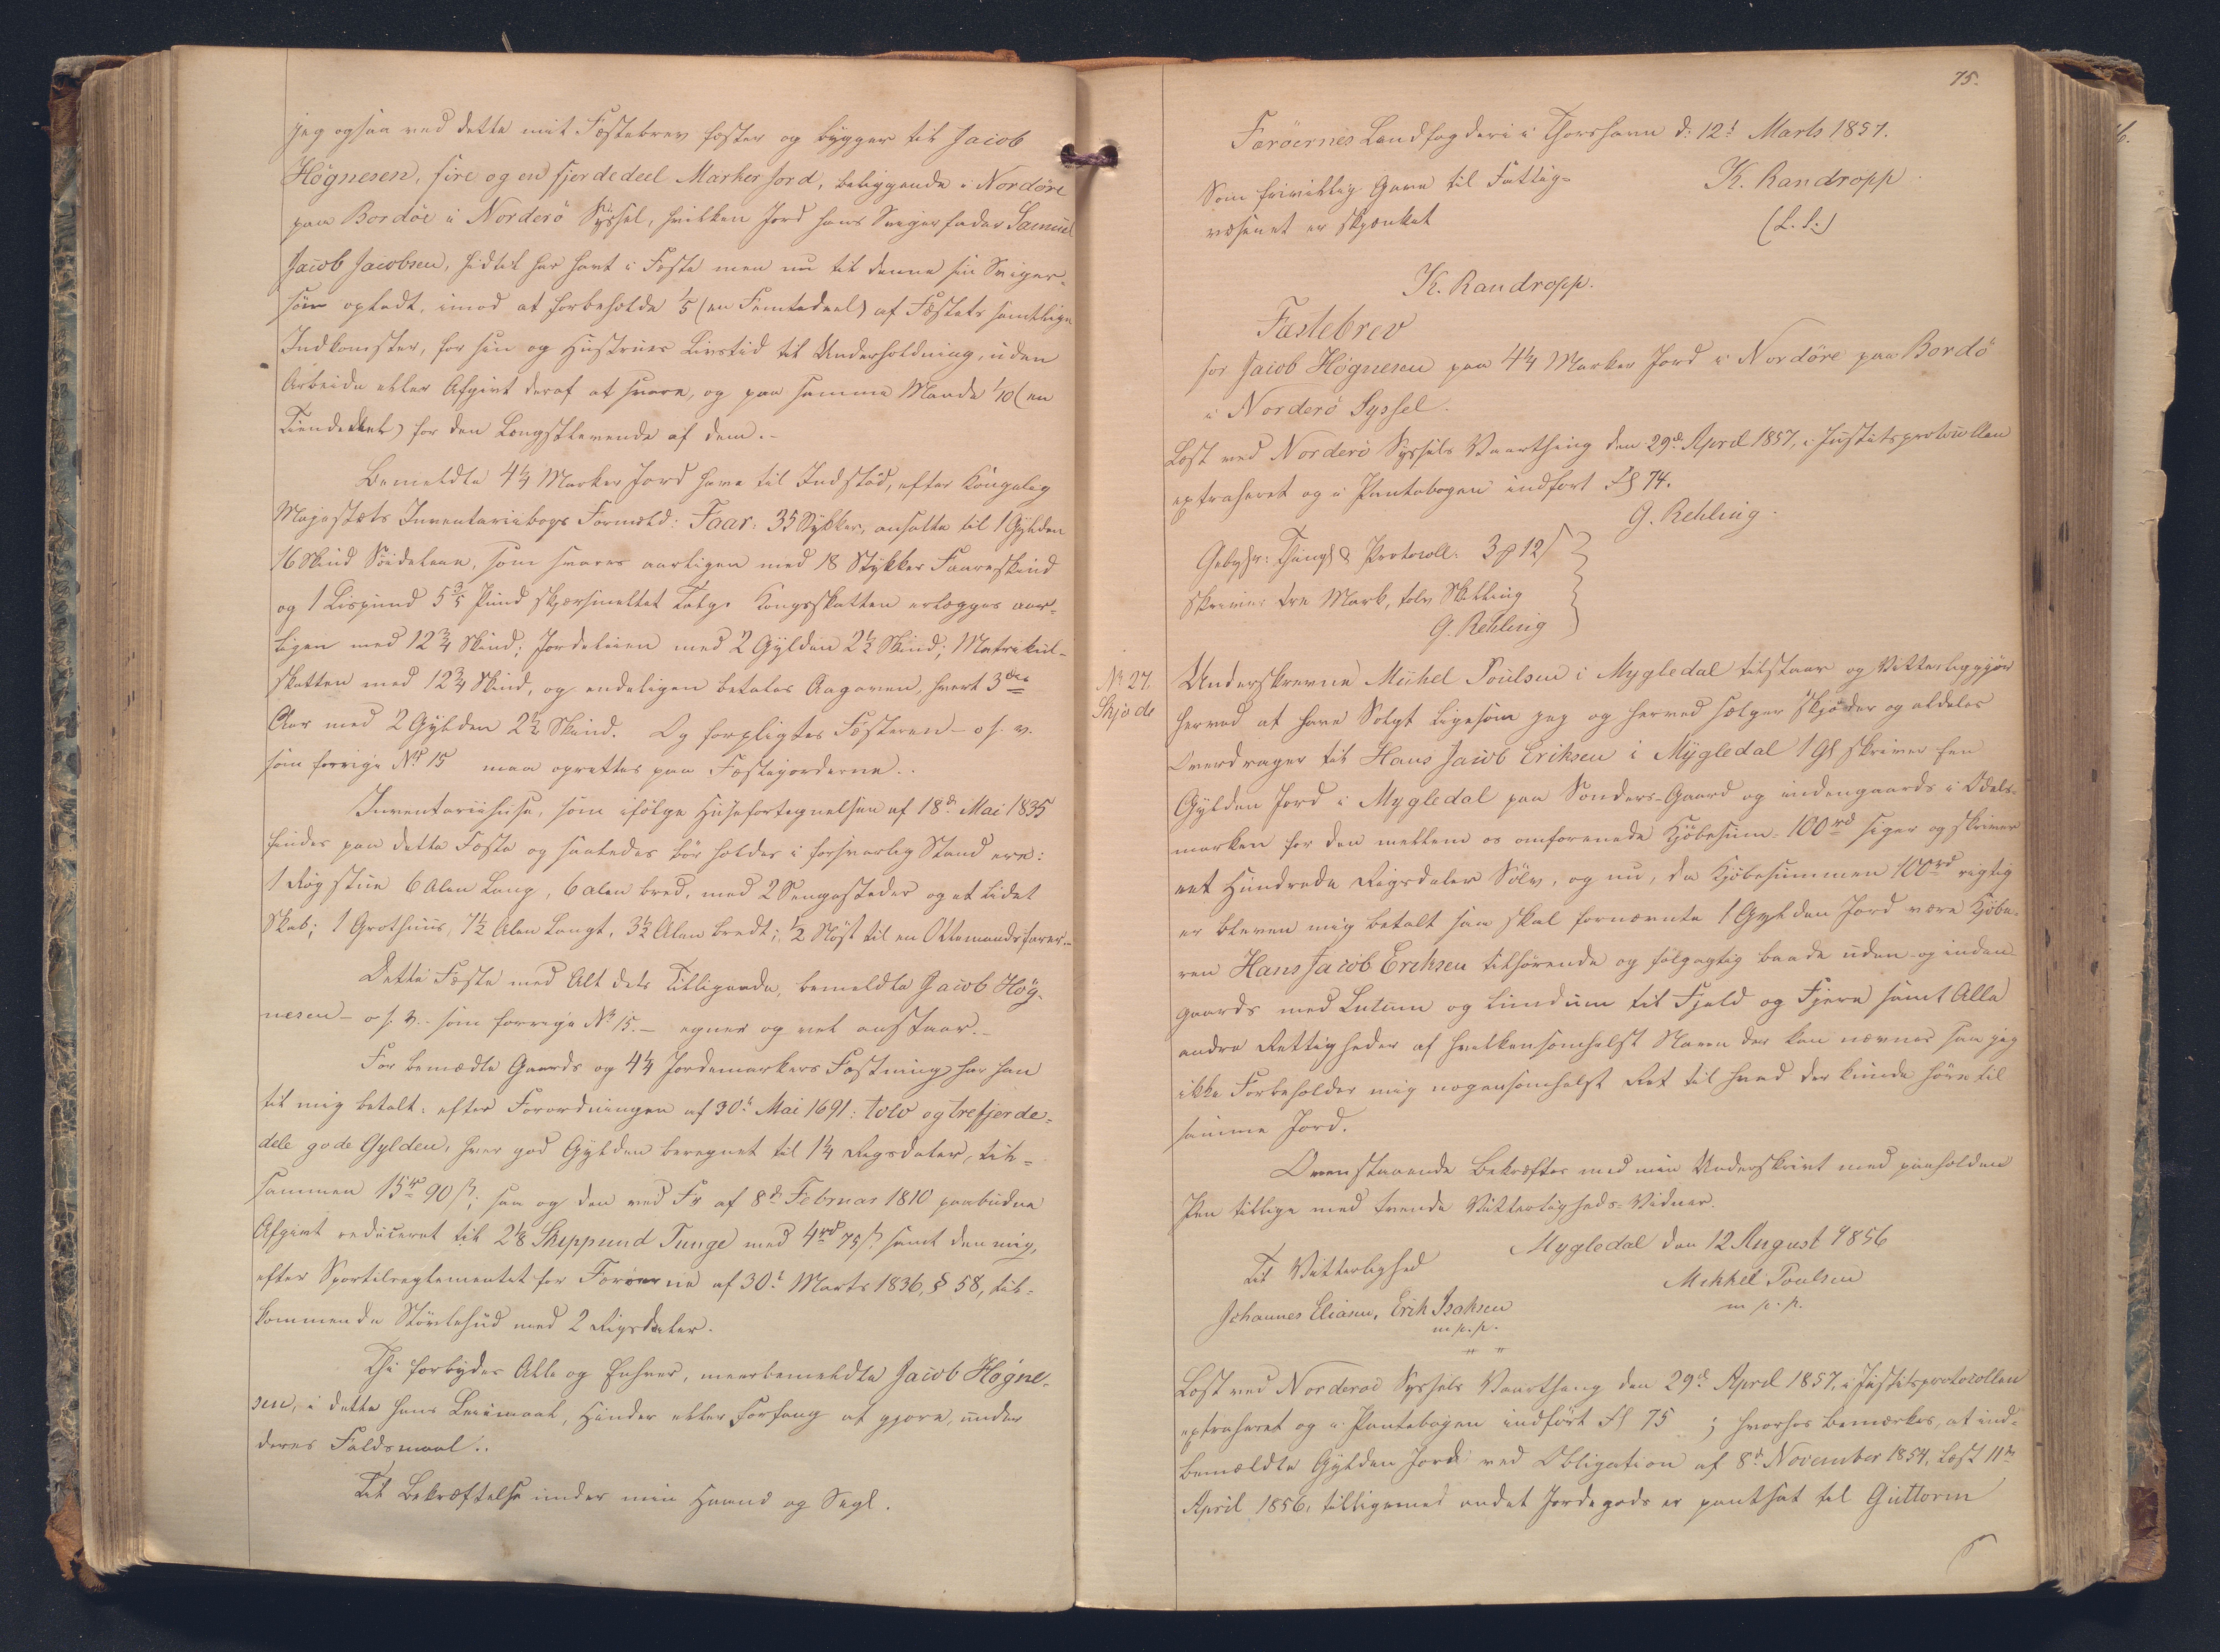 jeg ogsaa ved dette mit Fæstebrev fæster og bygger til Jacob
Høgnesen, fire og en fjerdedeel Marker Jord, beliggende i Nordöre
paa Bordöe i Norderö Syssel, hvilken Jord hans Svigerfader Samuel
Jacob Jacobsen, hidtil har havt i Fæste men nu til denne sin Sviger-
søn opladt, imod at forbeholde 1/5 (en Femtedeel) af Fæstets samtlige
Indkomster, for sin og Hustrues Livstid til Underholdning, uden
Arbeide eller Afgivt deraf at svare, og paa samme Maade 1/10 (en
Tiendedeel) for den Længstlevende af dem.-
Bemeldte 4¼ Marker Jord have til Indstød, efter Kongelig
Majestæts Inventariibogs Formeld: Faar: 35 Stykker, ansatte til 1 Gylden
16 Skind Søideleie, som svares aarligen med 18 Stykker Faareskind
og 1 Lispund 5 3/5 Pund skjærsmeltet Talg. Kongsskatten erlægges aar-
ligen med 12¾ Skind; Jordeleien med 2 Gylden 2½ Skind; Matrikul-
skatten med 12¾ Skind, og endeligen betales Aagaven, hvert 3die
Aar med 2 Gylden 2½ Skind. Og forpligtes Fæsteren - o. s. v.
som forrige No 15 maa oprettes paa Fæstejorderne..
Inventariihuse, som ifølge Husefortegnelsen af 18d Mai 1835
findes paa dette Fæste og saaledes bør holdes i forsvarlig Stand ere:
1 Røgstue 6 Alen Lang, 6 Alen bred, med 2 Sengesteder og et Lidet
Skab; 1 Grothuus, 7½ Alen Langt, 3½ Alen bredt; ½ Nøst til en Ottemandsfarer.-
Dette Fæste med Alt dets Tilliggende, bemeldte Jacob Høg-
nesen - o. s. v. - som forrige No 15.- egner og vel anstaar.-
For bemældte Gaards og 4¼ Jordemarkers Fæstning har han
til mig betalt: efter Forordningen af 30t Mai 1691: tolv og trefjerde-
dele gode Gylden, hver god Gylden beregnet til 1¼ Rigsdaler, til-
sammen 15rd 90ß; saa og den ved Fr af 8d Februar 1810 paabudne
Afgivt reduceret til 2⅛ Skippund Tunge med 4rd 75ß samt den mig,
efter Sportelreglementet for Færøerne af 30t Marts 1836, § 58, til-
kommende Støvlehud med 2 Rigsdaler.
Thi forbydes Alle og Enhver, meerbemeldte Jacob Høgne-
sen, i dette hans Leiemaal, Hinder eller Forfang at gjøre, under
deres Faldsmaal..
Til Bekræftelse under min Haand og Segl.
75.
Færöernes Landfogderi i Thorshavn d: 12t Marts 1857.
Som frivillig Gave til Fattig- K. Randropp.
væsenet er skjænket (L. S.)
K. Randropp.
Fæstebrev
for Jacob Högnesen paa 4¼ Marker Jord i Nordöre paa Bordö
i Norderö Syssel.
Læst ved Norderö Syssels Vaarthing den 29d April 1857, i Justitsprotocollen
extraheret og i Pantebogen indført Fol 74.
G. Rehling.
Gebyhr: Thingl & Protocoll: 3 # 12 ß
skriver tre Mark, tolv Skilling
G. Rehling
No 27.
Skjøde
Underskrevne Michel Poulsen i Mygledal tilstaar og Vitterliggjør
herved at have Solgt ligesom jeg og herved sælger skjøder og aldeles
Overdrager til Hans Jacob Eriksen i Mygledal 1 Gl skriver Een
Gylden Jord i Mygledal paa Sönders-Gaard og indengaards i Odels-
marken for den mellem os omforenede Kjøbesum 100rd siger og skriver
eet Hundrede Rigsdaler Sölv, og nu, da Kjøbesummen 100rd rigtig
er bleven mig betalt saa skal fornævnte 1 Gylden Jord være Kjøbe-
ren Hans Jacob Eriksen tilhørende og følgagtig baade uden- og inden-
gaards med Lutum og Lundum til Fjeld og Fjære samt Alle
andre Rettigheder af hvilkensomhelst Navn der kan nævnes saa jeg
ikke Forbeholder mig nogensomhelst Ret til hvad der kunde høre til
samme Jord.
Ovenstaaende bekræftes med min Underskrivt med paaholden
Pen tillige med tvende Vitterligheds-Vidner.
Mygledal den 12 August 1856
Til Vitterlighed Mikkel Poulsen
Johannes Eliasen, Erik Isaksen m. p. p.
m. p. p.
" "
Læst ved Norderöe Syssels Vaarthing den 29d April 1857, i Justitsprotocollen
extraheret og i Pantebogen indført Fol 75; hvorhos bemærkes, at ind-
bemældte Gylden Jord ved Obligation af 8d November 1854, læst 11te
April 1856, tilligemed andet Jordegods er pantsat til Guttorm